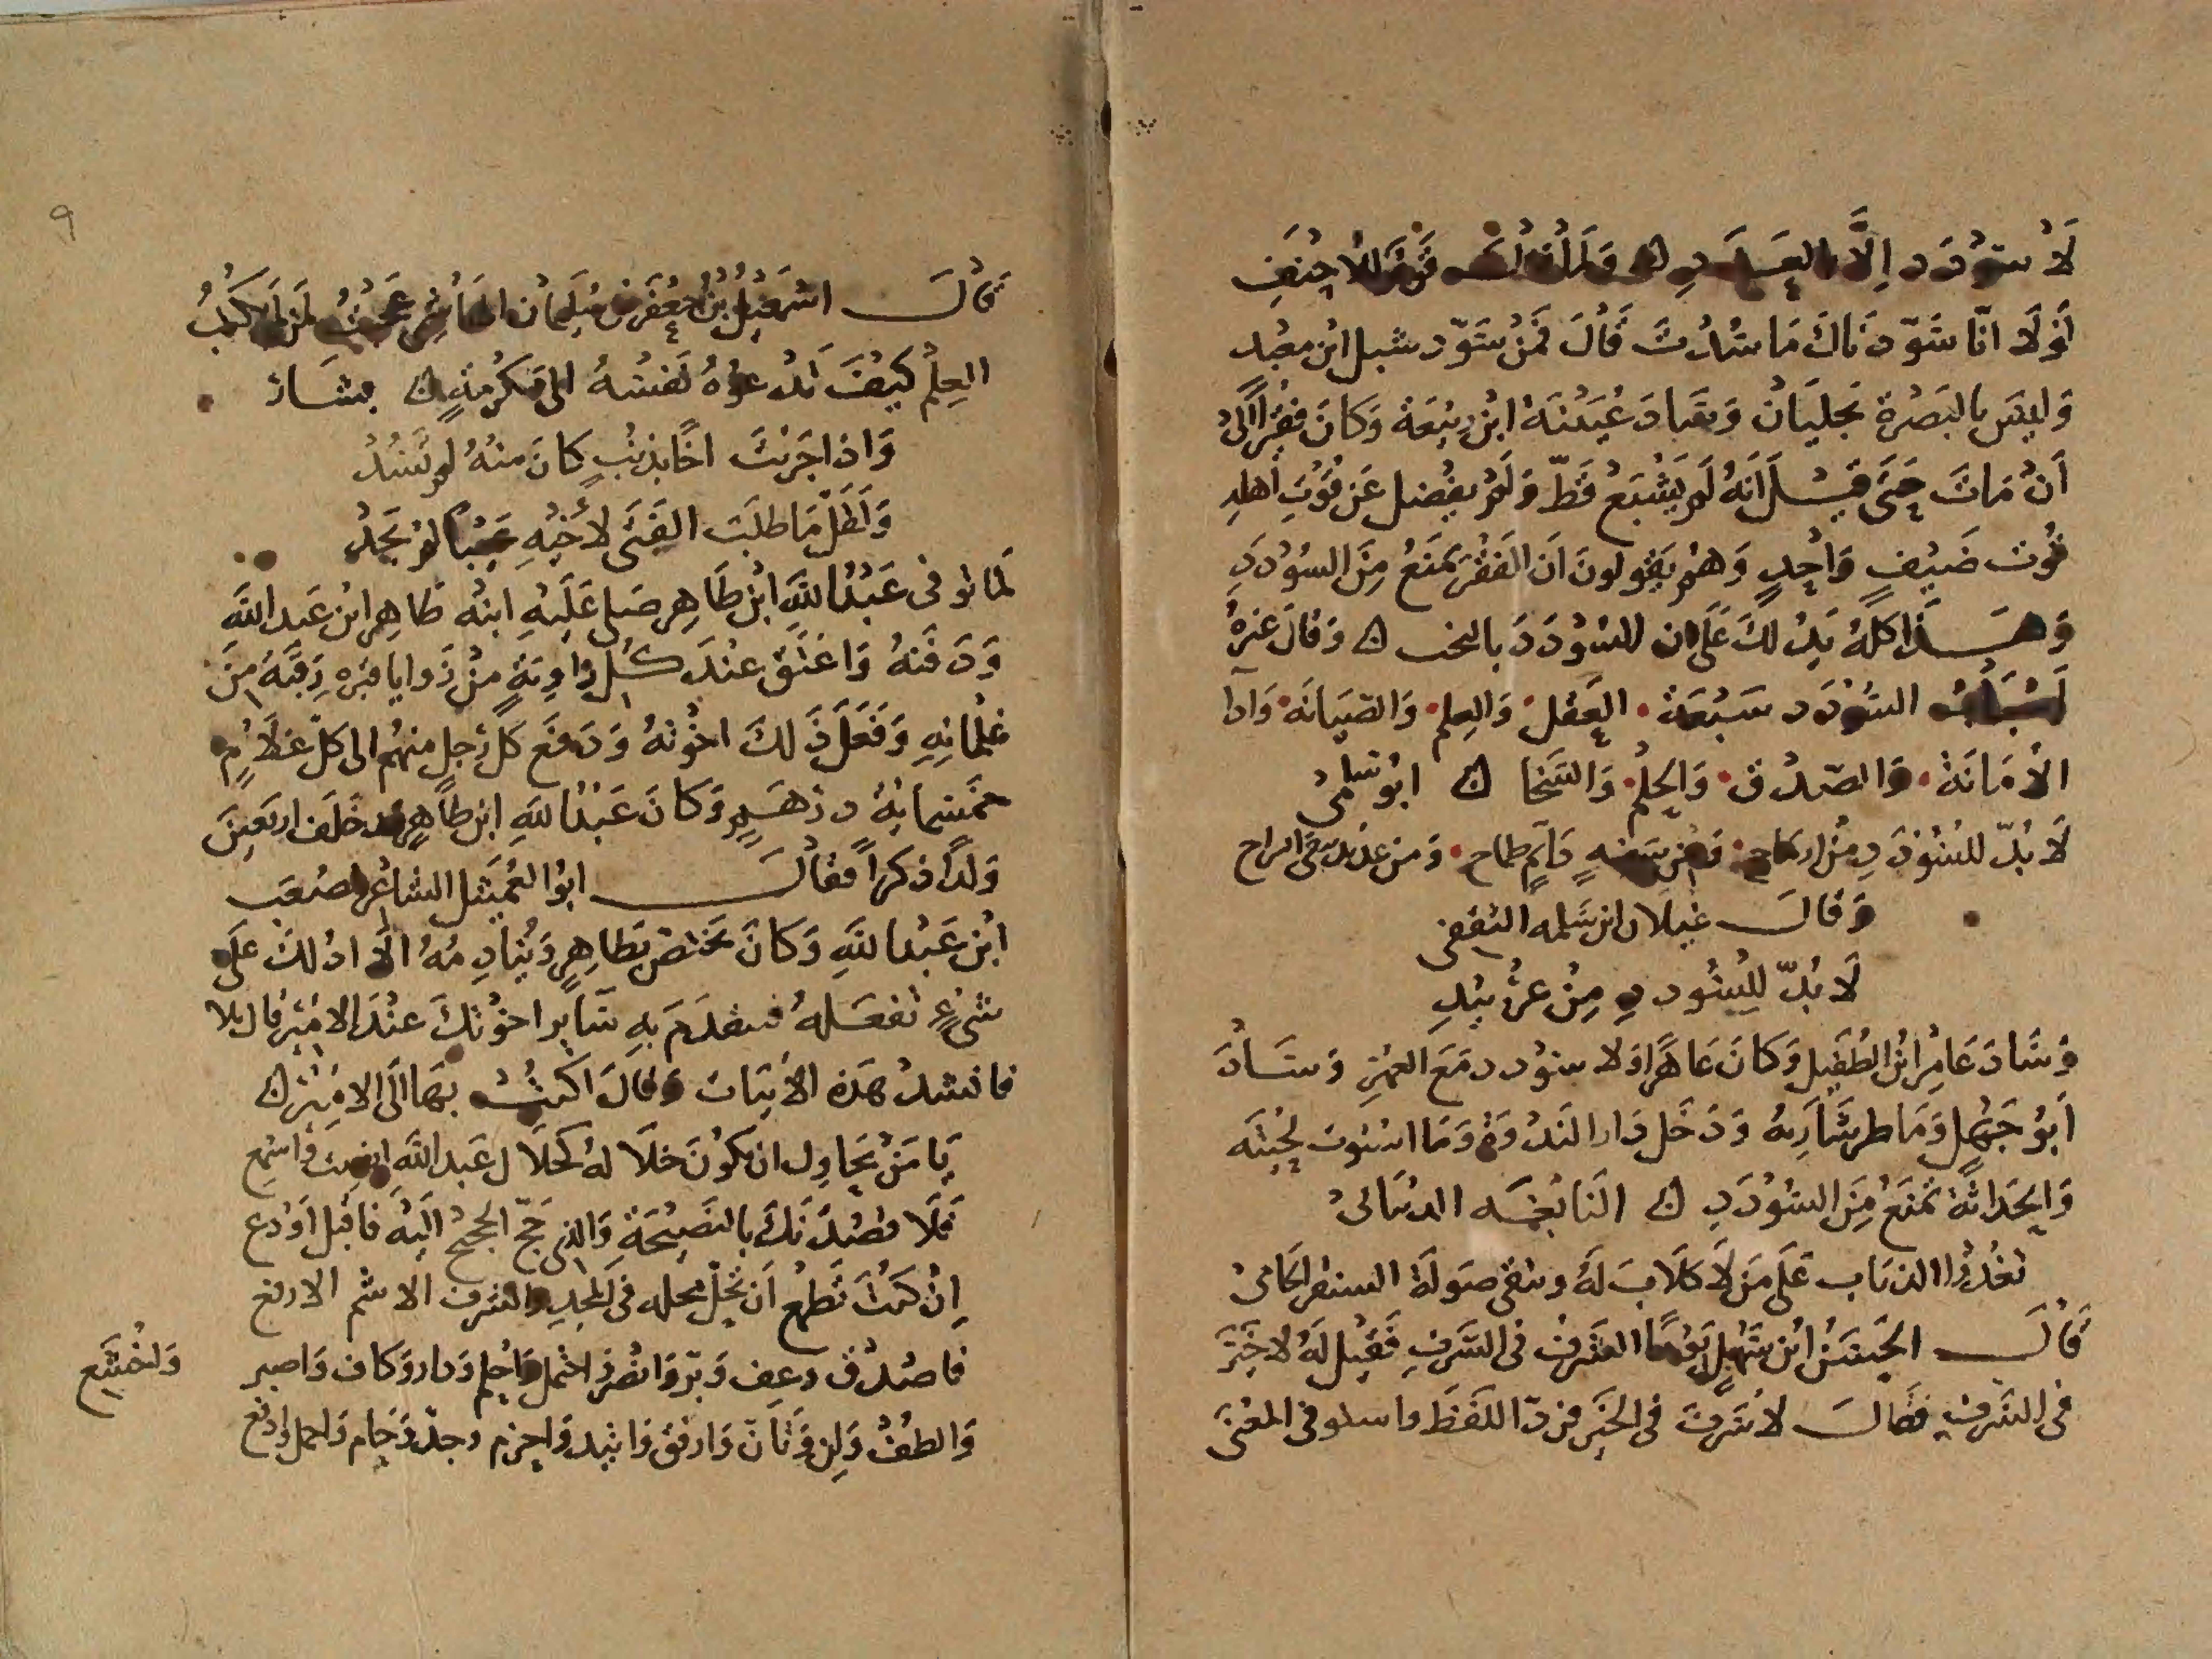 لَا سَوْدَد اِلَّا بالعَدَدِ ۞ وَلمَا قالت قَوْمُ الاحْنَفِ
أَوْلَا انّا سَوّدنَاكَ مَا سُدْتَ قَالَ فَمَنْ سَوّد شبل ابن معْبد
وَليسَ بالبَصْرة بَجليَانْ وَسَادَ عُيَيْنَة ابْن رَبيْعَة وَكانَ فقيْراً الىْ
أَنْ مَاتَ حَتّىَ قيْل أَنهُ لَم يَشْبَعْ قَطّ وَلَمْ يفْضل عَن قُوْتِ أهلهِ
قُوْت ضَيْفٍ وَاحِدٍ وَهُمْ يَقولونَ اَن الفَقْرَ يمَنعُ مِنَ السُؤْدَدِ
وَهَذَا كلهُ يَدُلكَ عَلَى ان السُوْدَدَ بالبخت ۞ وَقالَ غيرهُ
أَسْبَابُ السُوْدَد سَبْعَة العَقل وَالعِلم وَالصّيَانَة وَادَا
الأمَانَة وَالصّدْق وَالحِلْم وَالسّخا ۞ ابُو سَلمى
لَا بُدّ للسُوْدَدِ مِنْ ارمَاح وَمِنْ سَفيهٍ دَايم طماح وَمن عديد يتقى بالراح
وَقالَ غيلان ابن سَلمه الثقفى
لَا بُدّ لِلسُودَدِ مِنْ عَشيْرِ
وَسَادَ عَامِرُ ابْن الطُفَيل وَكانَ عَاهِراً وَلا سوْدد مَعَ العهْرِ وَسَادَ
أَبُوْ جَهْل وَمَا طرشَاربهُ وَدَخَل دَار النَدْوَة وَمَا استوَت لحْيتَه
وَالحَدَاثَة تمْنَعُ مِنَ السُوْدَدِ ۞ النَابغَه الذبْيَانىْ
تعْدُوا الذيَاب عَلَى مَن لَا كلَابَ لَهُ وتتقى صَولَة المستنفر الحَامىْ
قَالَ الحَسَنُ ابْن سَهْل يَوْمًا الشَرفُ فى السّرفِ فَقيْل لَهُ لا خَيْرَ
فى السَرفِ فقالَ لا سَرفَ فى الخَيرِ فردّ اللفَظ واستوفى المعْنَى
قَالَ اسْمَعيْل بْن جعْفَر بْن سُليمان الهَاشمى عَجبْتُ لمَن لم يَكتُب
العِلمْ كيفَ تدْعوْهُ نَفسُهُ الى مَكرُمَةٍ ۞ بشَار
وَاذا جَزيْتَ اخاً بذنبٍ كانَ منهُ لم تَسُدْ
وَلَقَلّ مَا طلبَ الفَتَى لأخيْهِ عَيْباً لمْ يَجدْ
لما توفى عَبْدُ اللهِ ابْن طَاهِر صَلى عَلَيْهِ ابنهُ طَاهِر ابْن عَبد الله
وَدَفَنهُ وَاعْتَقَ عنْدَ كُل زاويَةٍ منْ زَوايا قبْره رَقبَةً مِنَ
غلمانِهِ وَفَعَلَ ذَلكَ اخْوتهُ وَدَفعَ كل رَجلٍ منهُم الى كلّ غلَامٍ
خمسَمايةْ درهَمٍ وَكانَ عَبْدُ اللهِ ابن طاهِر قد خَلَف اربَعِينَ
وَلداً ذكراً فقالَ ابوُ العُمَيثل الشاعْر لمصْعَب
ابْن عَبْد اللهِ وَكانَ يَختص بطاهِرٍ وَيُنادِمُهُ الا ادلكَ عَلَى
شىْءٍ تفعَلهُ فتتقدَمَ بهِ سَاير اخوْتكَ عنْدَ الامْيَر قال بلا
فانشدْ هَذه الأبيَات وَقالَ اكتبْ بهَا الَى الاميَر ۞
يَا مَنْ يحَاول ان تكوُنَ خلَالهُ كخلَال عَبد اللهِ انصِت وَاسْمع
فَلَا قصُدَنكَ بالنَصيْحَة وَالذى حَجّ الحجيْجُ الَيْهُ فاقبَل أوْدَع
اِنْ كُنْتَ تَطمعْ أَن تحُلّ محَله فى المجْدِ وَالشرف الاشم الارفع
فاصْدُق وعِف وَبرّ وَانصُر وَاحْتمل وَاحلم وَدار وَكاف وَاصبر
وَاخشع
وَالطفْ وَلن وَتَانّ وَارفق وَاتيد وَاحزم وجدّ وَحَام وَاحمل وَادْفع